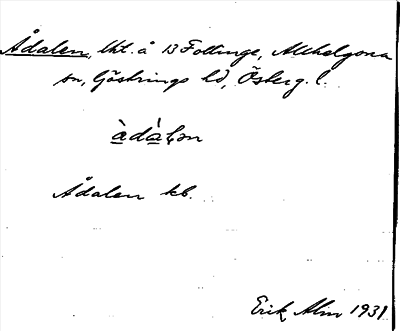 Ådalen, lht. å 13 Follinge, Allhelgona
sn, Göstrings hd, Österg. l.
àdálən
Ådalen kb.
Erik Alm 1931